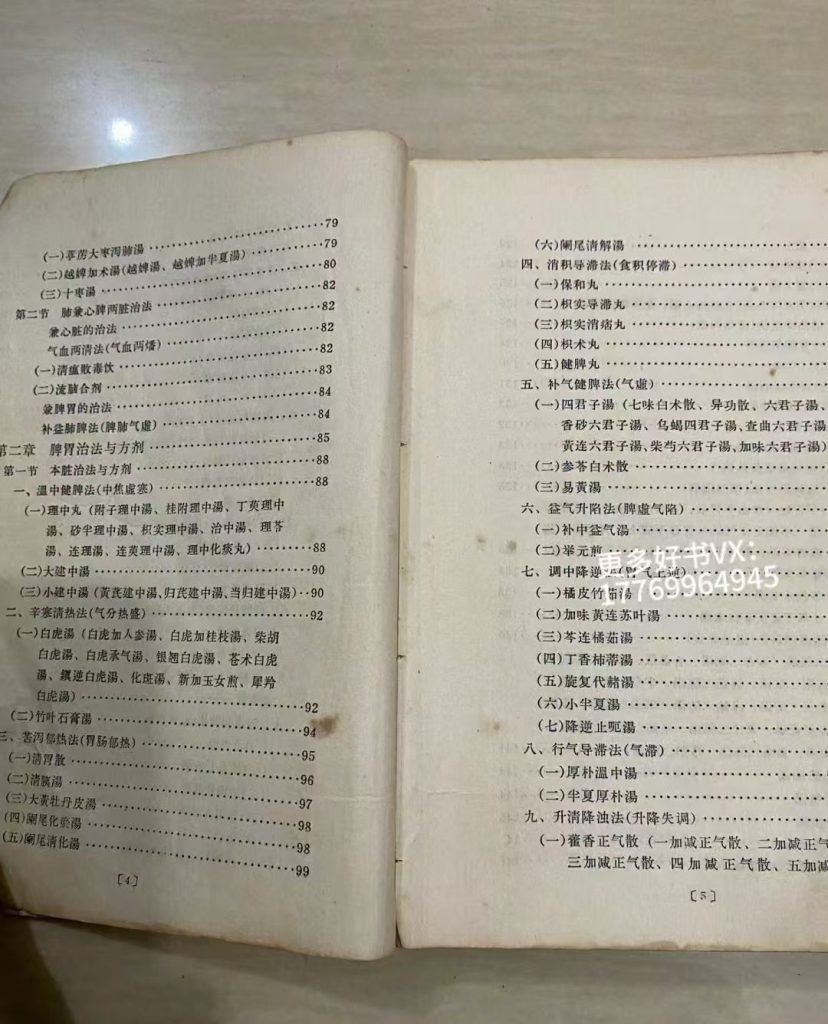 (一)葶苈大枣泻肺湯 ·················79
(二)越婢加术湯(越婢湯、越婢加半夏湯) ·········79
(三)十枣湯 ·················80
第二节 肺兼心脾两脏治法 ·················82
兼心脏的治法 ·················82
气血两清法(气血两燔) ·················82
(一)清瘟败毒饮 ·················82
(二)流脑合剂 ·················83
兼脾胃的治法 ·················84
补益肺脾法(脾肺气虚) ·················84
第二章 脾胃治法与方剂 ·················85
第一节 本脏治法与方剂 ·················88
一、溫中健脾法(中焦虛寒) ·················88
(一)理中丸(附子理中湯、桂附理中湯、丁萸理中
湯、砂半理中湯、枳实理中湯、治中湯、理苓
湯、连理湯、连萸理中湯、理中化痰丸) ······88
(二)大建中湯 ·················90
(三)小建中湯(黄芪建中湯、归芪建中湯、当归建中湯) ··90
二、辛寒清热法(气分热盛) ·················92
(一)白虎湯(白虎加人参湯、白虎加桂枝湯、柴胡
白虎湯、白虎承气湯、银翘白虎湯、苍术白虎
湯、鎭逆白虎湯、化斑湯、新加玉女煎、犀羚
白虎湯) ·················92
(二)竹叶石膏湯 ·················94
三、苦泻郁热法(胃肠郁热) ·················95
(一)清胃散 ·················96
(二)清胰湯 ·················97
(三)大黃牡丹皮湯 ·················98
(四)阑尾化瘀湯 ·················98
(五)阑尾清化湯 ·················99
〔4〕
(六)阑尾清解湯 ·················
四、消积导滞法(食积停滞) ·················
(一)保和丸 ·················
(二)枳实导滞丸 ·················
(三)枳实消痞丸 ·················
(四)枳术丸 ·················
(五)健脾丸 ·················
五、补气健脾法(气虛) ·················
(一)四君子湯(七味白术散、异功散、六君子湯、
香砂六君子湯、乌蝎四君子湯、查曲六君子湯
黄连六君子湯、柴芍六君子湯、加味六君子湯)
(二)参苓白术散 ·················
(三)易黄湯 ·················
六、益气升陷法(脾虛气陷) ·················
(一)补中益气湯 ·················
(二)举元煎 ·················
七、调中降逆法(胃气上逆) ·················
(一)橘皮竹茹湯 ·················
(二)加味黄连苏叶湯 ·················
(三)芩连橘茹湯 ·················
(四)丁香柿蒂湯 ·················
(五)旋复代赭湯 ·················
(六)小半夏湯 ·················
(七)降逆止呃湯 ·················
八、行气导滞法(气滞) ·················
(一)厚朴溫中湯 ·················
(二)半夏厚朴湯 ·················
九、升清降浊法(升降失调) ·················
(一)藿香正气散(一加减正气散、二加减正气
三加减正气散、四加减正气散、五加减
〔5〕
更多好书VX:
17769964945